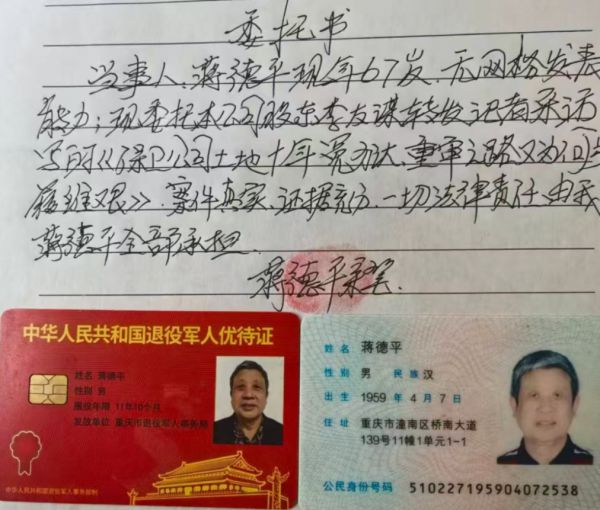 委托书
当事人、蒋德平现年67岁、无网络发表
能力；现委托本公司股东李友谋转发记者采访
写的《保卫公司土地十年冤为达、重审之路又为何步
履维艰》、案件真实、证据充分、一切法律责任由我
蒋德平全部承担.
蒋德平
中华人民共和国退役军人优待证
姓名 蒋德平
性别 男
服役年限 11年10个月
发放单位 重庆市退役军人事务局
中华人民共和国退役军人事务部制
姓名 蒋德平
性别 男 民族 汉
出生 1959 年 4 月 7 日
住址 重庆市潼南区桥南大道
139号11幢1单元1-1
公民身份号码 510227195904072538